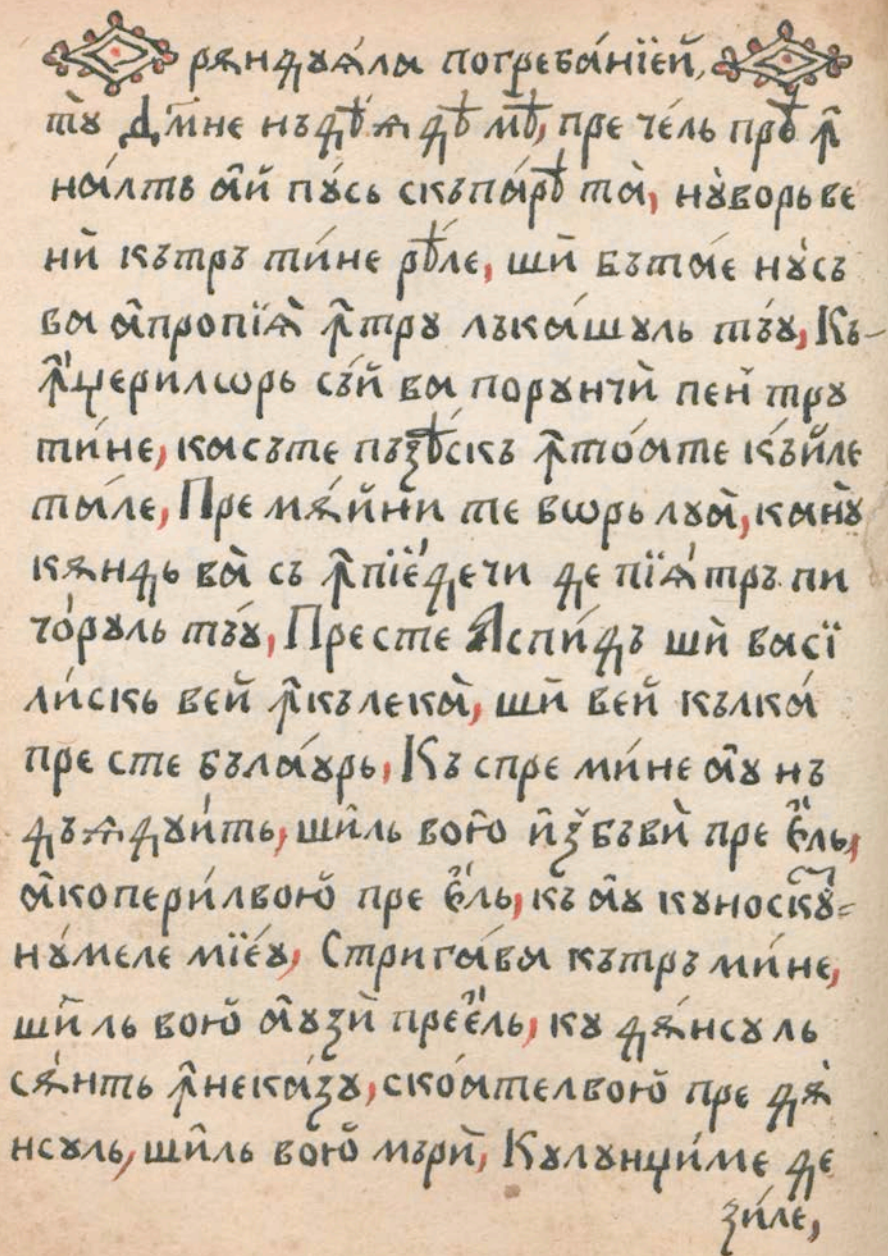 рѫндꙋѧ́ла погреба́нїей,
тꙋ Дм҃не нъдѣ́ѫдѣ мѣ̀, пре че́ль прѣ́ ꙟ҆
на́лть а҆й пꙋ́сь скъпа́рѣ та̀, нꙋ̀ворьве
нѝ кътръ ти́не рѣ́ле, шѝ бъта́е нꙋ́сь
ва а҆пропїѧ̀ ꙟ҆тру лъка́шꙋль тъ́ꙋ, Къ-
ꙟ҆́џерилѡрь съ́й ва порꙋнчѝ пен тру
ти́не, касъте пъзѣ́скъ ꙟ҆то́ате къ́йле
та́ле, Пре мѫ́йни те вѡрь лꙋа̀, канꙋ̀
кѫндь ва̀ съ ꙟ҆пїе́дечи де пїѧ́тръ пи
чо́рꙋль тъ́ꙋ, Престе Аспи́дъ шѝ васї
ли́скь вей ꙟ҆къ лека̀, шѝ вей кълка́
пре сте бъла́ꙋрь, Къ спре ми́не а҆ꙋ нъ
дъѫдꙋи́ть, ши҆ль вою̀ и҆збъвѝ пре є҆́ль,
а҆копери́лвою̀ пре є҆́ль, къ а҆ꙋ кꙋноскꙋ́=
нꙋ́меле мїе́ꙋ, Стрига́ва кътръ ми́не,
ши҆ ль вою̀ а҆ꙋзѝ прее҆́ль, кꙋ дѫ́нсꙋ ль
сѫ́нть ꙟ҆нека́зꙋ, ско́ателвою̀ пре дѫ̀
нсꙋль, ши҆ль вою̀ мърѝ, Кꙋлꙋнџи́ме де
зи́ле,